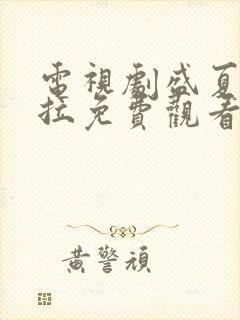 電視劇盛夏
拉免費觀看
黃警頑